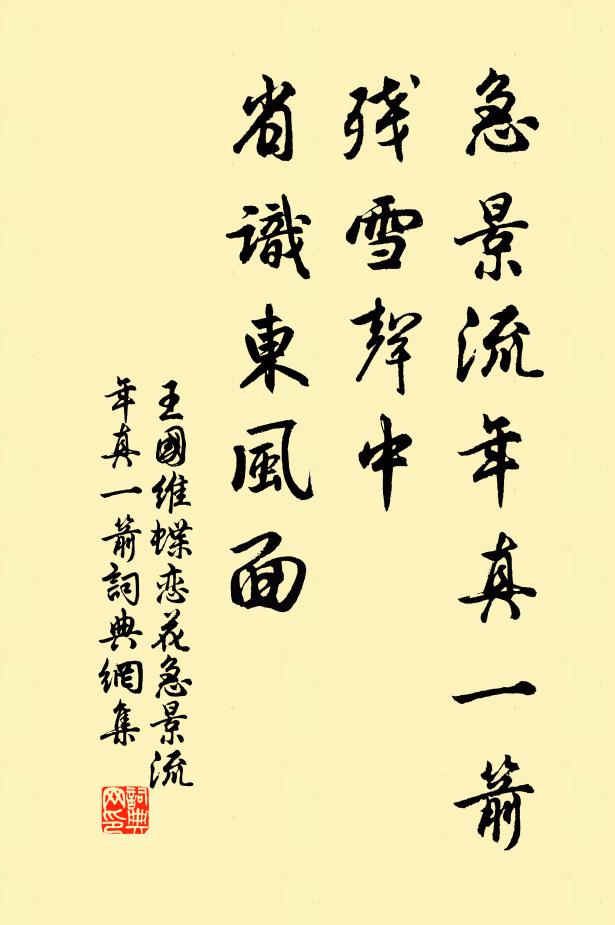 急景流年真一箭
残雪聲中
省識東風面
王國維蝶恋花急景流
年真一箭詞典網集
詞典
网印